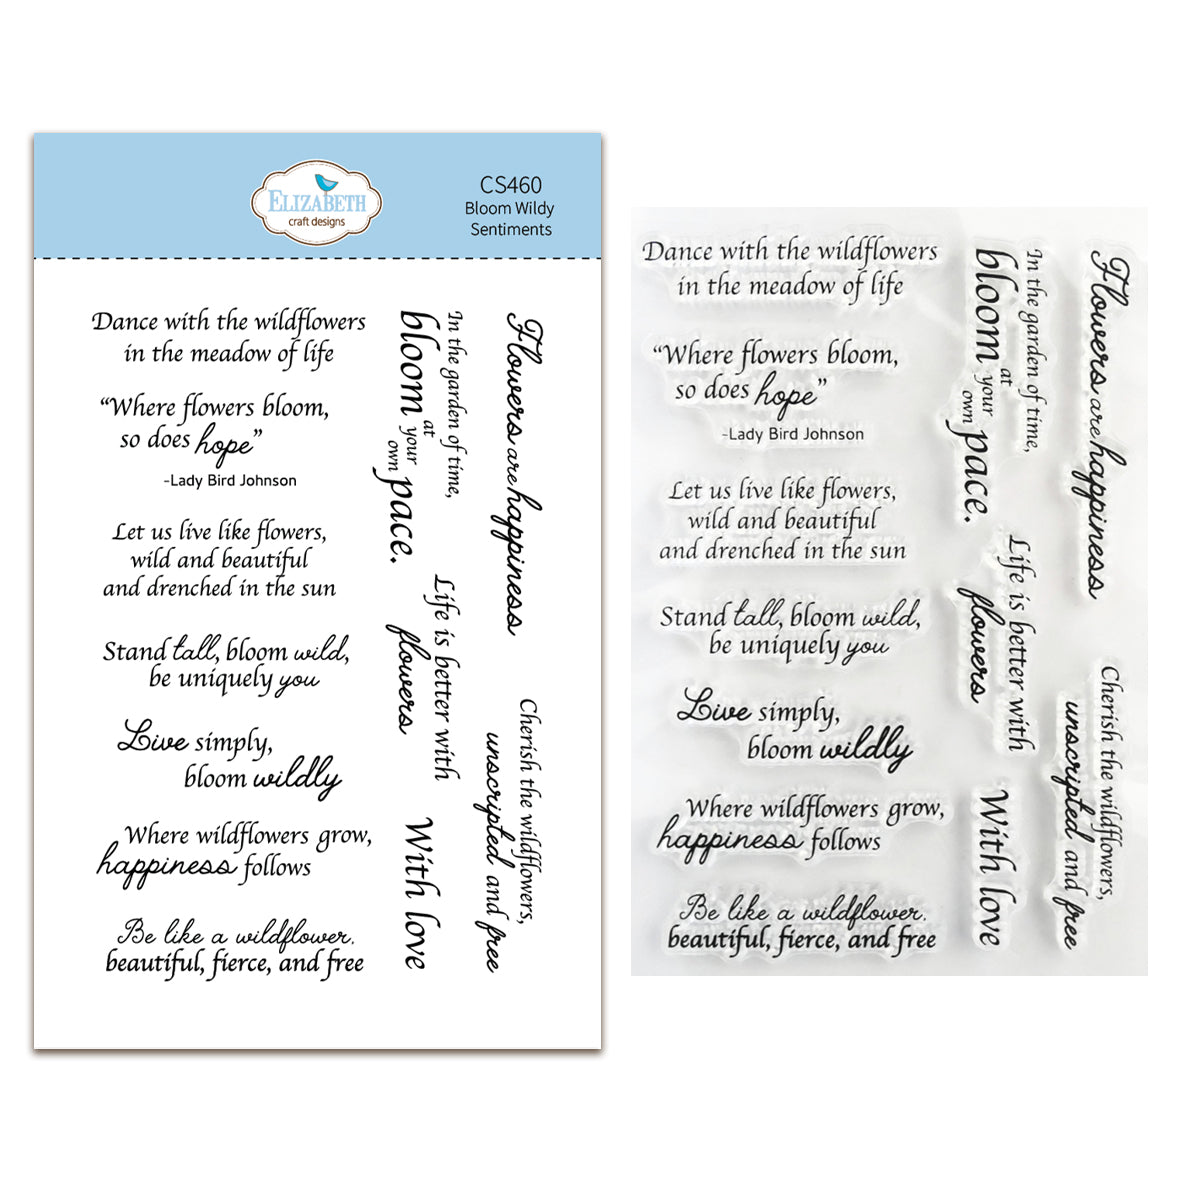 ELIZABETH
craft designs
CS460
Bloom Wildy
Sentiments
Dance with the wildflowers
in the meadow of life
“Where flowers bloom,
so does hope”
-Lady Bird Johnson
Let us live like flowers,
wild and beautiful
and drenched in the sun
Stand tall, bloom wild,
be uniquely you
Live simply,
bloom wildly
Where wildflowers grow,
happiness follows
Be like a wildflower.
beautiful, fierce, and free
In the garden of time,
bloom at your own pace.
Life is better with
flowers
With love
Flowers are happiness
Cherish the wildflowers,
unscripted and free
Dance with the wildflowers
in the meadow of life
“Where flowers bloom,
so does hope”
-Lady Bird Johnson
Let us live like flowers,
wild and beautiful
and drenched in the sun
Stand tall, bloom wild,
be uniquely you
Live simply,
bloom wildly
Where wildflowers grow,
happiness follows
Be like a wildflower.
beautiful, fierce, and free
In the garden of time,
bloom at your own pace.
Life is better with
flowers
With love
Flowers are happiness
Cherish the wildflowers,
unscripted and free